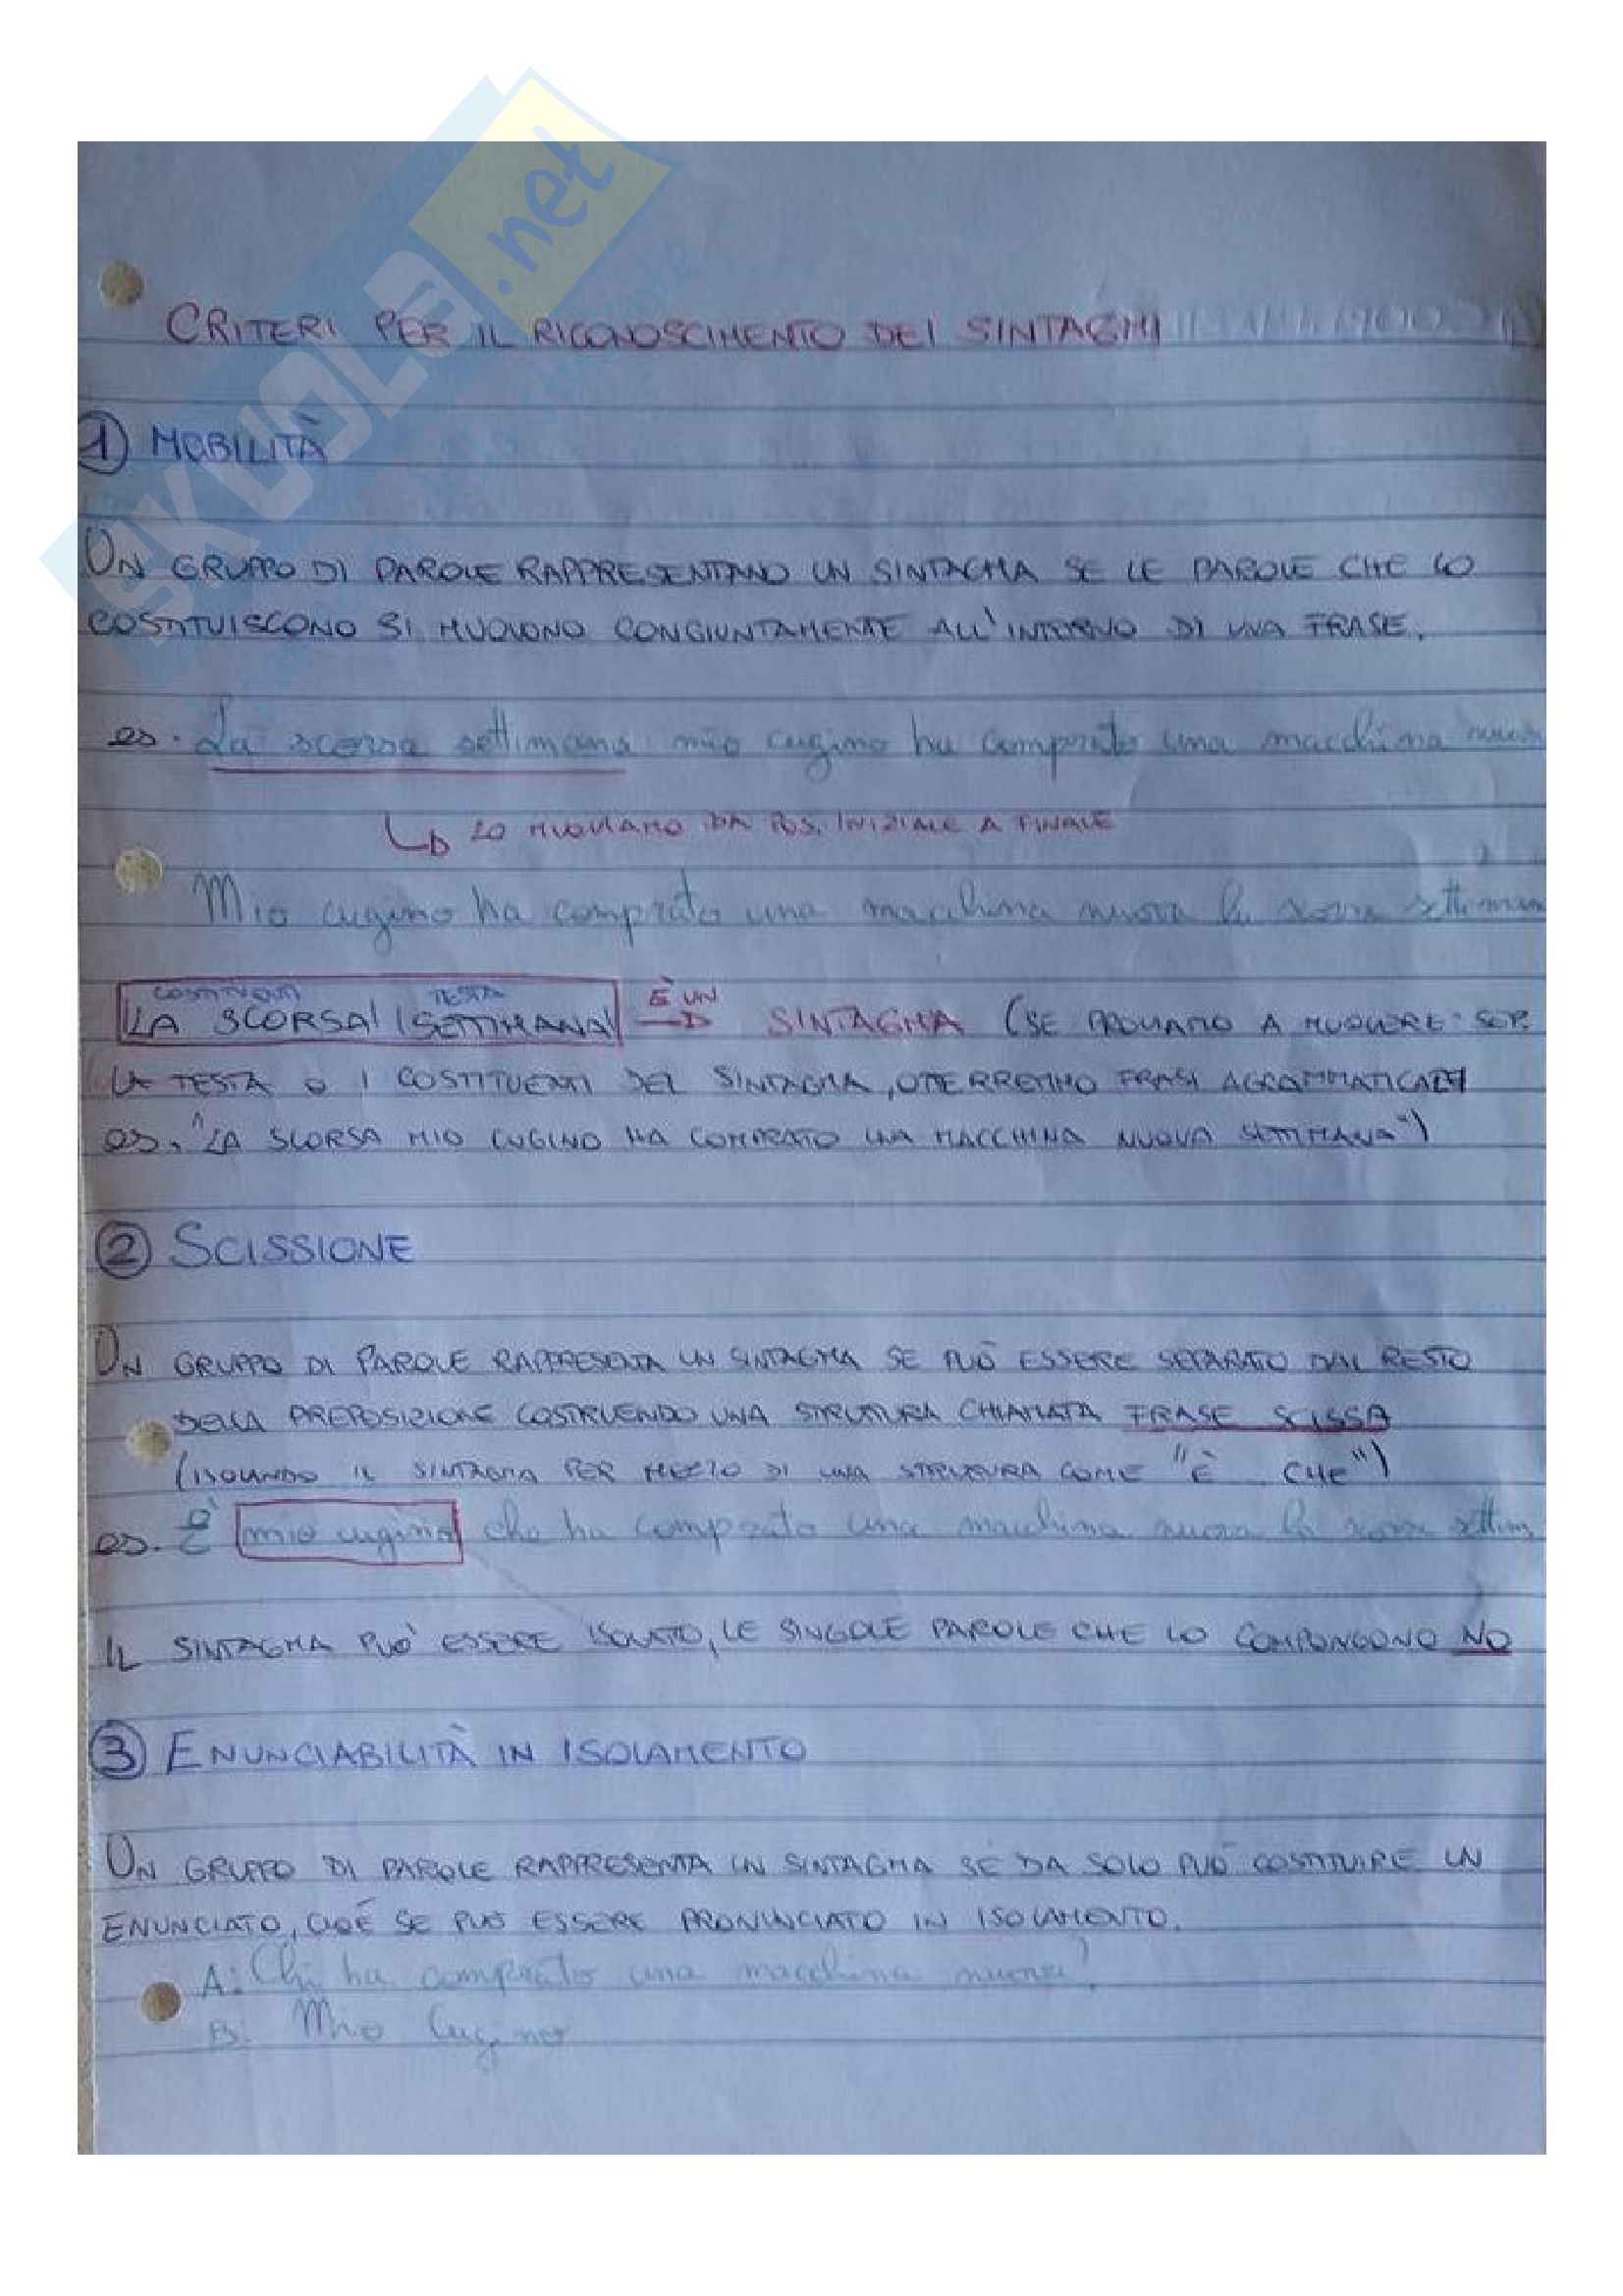 SKUOLA.net
CRITERI PER IL RICONOSCIMENTO DEI SINTAGMI
1) MOBILITÀ
UN GRUPPO DI PAROLE RAPPRESENTANO UN SINTAGMA SE LE PAROLE CHE LO
COSTITUISCONO SI MUOVONO CONGIUNTAMENTE ALL'INTERNO DI UNA FRASE.
es. La scorsa settimana mio cugino ha comprato una macchina nuova
LO MUOVIAMO DA POS. INIZIALE A FINALE
Mio cugino ha comprato una macchina nuova la scorsa settimana
COSTITUENTI TESTA È UN
LA SCORSA SETTIMANA SINTAGMA (SE PROVIAMO A MUOVERE
LA TESTA O I COSTITUENTI DEL SINTAGMA, OTTERREMO FRASI AGRAMMATICALI
es. "LA SCORSA MIO CUGINO HA COMPRATO UNA MACCHINA NUOVA SETTIMANA")
2 SCISSIONE
UN GRUPPO DI PAROLE RAPPRESENTA UN SINTAGMA SE PUÒ ESSERE SEPARATO DAL RESTO
DELLA PREPOSIZIONE COSTRUENDO UNA STRUTTURA CHIAMATA FRASE SCISSA
(ISOLANDO IL SINTAGMA PER MEZZO DI UNA STRUTTURA COME "È CHE")
es. È mio cugino che ha comprato una macchina nuova la scorsa settim
IL SINTAGMA PUÒ ESSERE ISOLATO, LE SINGOLE PAROLE CHE LO COMPONGONO NO
3 ENUNCIABILITÀ IN ISOLAMENTO
UN GRUPPO DI PAROLE RAPPRESENTA UN SINTAGMA SE DA SOLO PUÒ COSTITUIRE UN
ENUNCIATO, CIOÈ SE PUÒ ESSERE PRONUNCIATO IN ISOLAMENTO.
A: Chi ha comprato una macchina nuova?
B: Mio Cugino